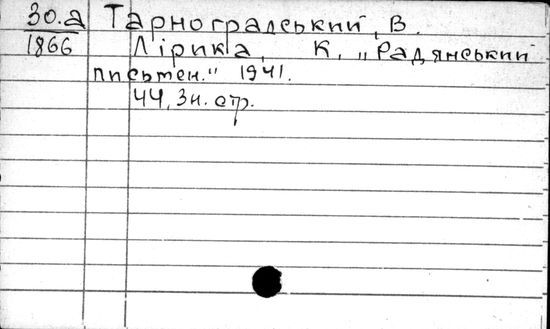 30.а Тарноградський, В.
1866 Лірика, К, „Радянський
письмен." 1941.
44, 3н. стр.